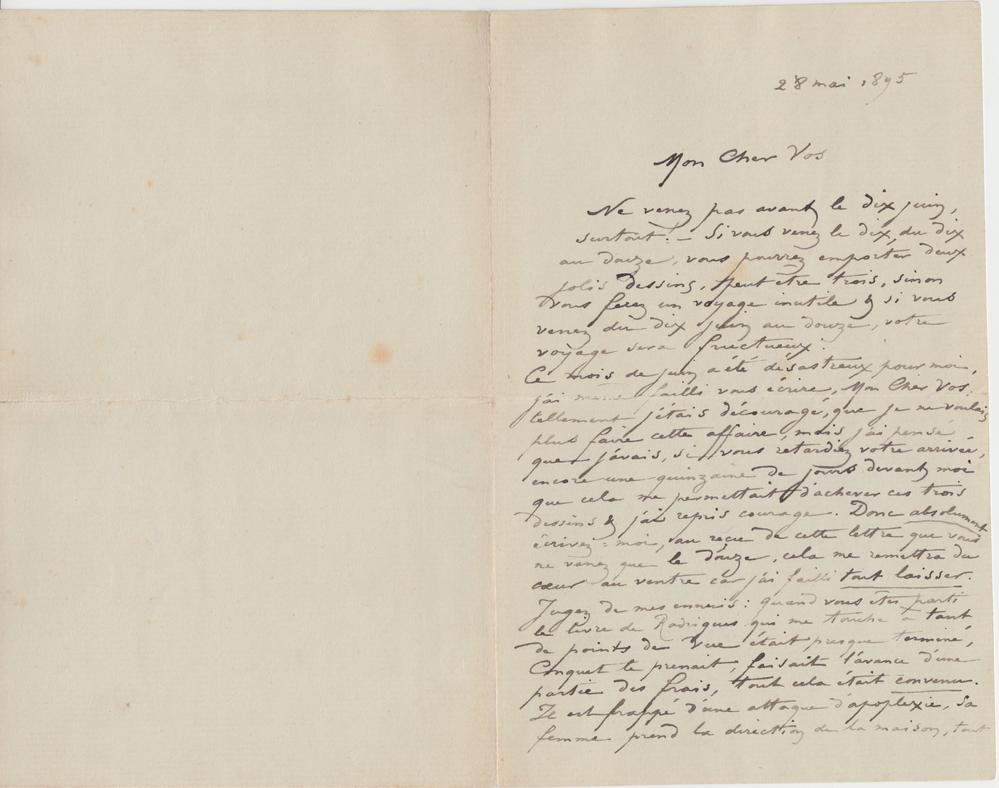 28 mai 1895
Mon Cher Vos
Ne venez pas avant le dix juin,
surtout! - Si vous venez le dix, du dix
au douze, vous pourrez emporter deux
jolis dessins, peut être trois, sinon
vous ferez un voyage inutile & si vous
venez du dix juin au douze, votre
voyage sera fructueux!
Ce mois de juin a été désastreux pour moi,
j'ai failli vous écrire, Mon Cher Vos
tellement j'étais découragé, que je ne voulais
plus faire cette affaire, mais j'ai pensé
que j'avais, si vous retardiez votre arrivée,
encore une quinzaine de jours devant moi
que cela me permettait d'achever ces trois
dessins & j'ai repris courage. Donc absolument
écrivez-moi, au reçu de cette lettre que vous
ne venez que le douze, cela me remettra du
cœur au ventre car j'ai failli tout laisser.
Jugez de mes ennuis : quand vous êtes parti
le livre de Rodrigues qui me touche à tant
de points de vue était presque terminé,
Conquet le prenait, faisait l'avance d'une
partie des frais, tout cela était convenu.
Il est frappé d'une attaque d'apoplexie, sa
femme prend la direction de la maison, tout